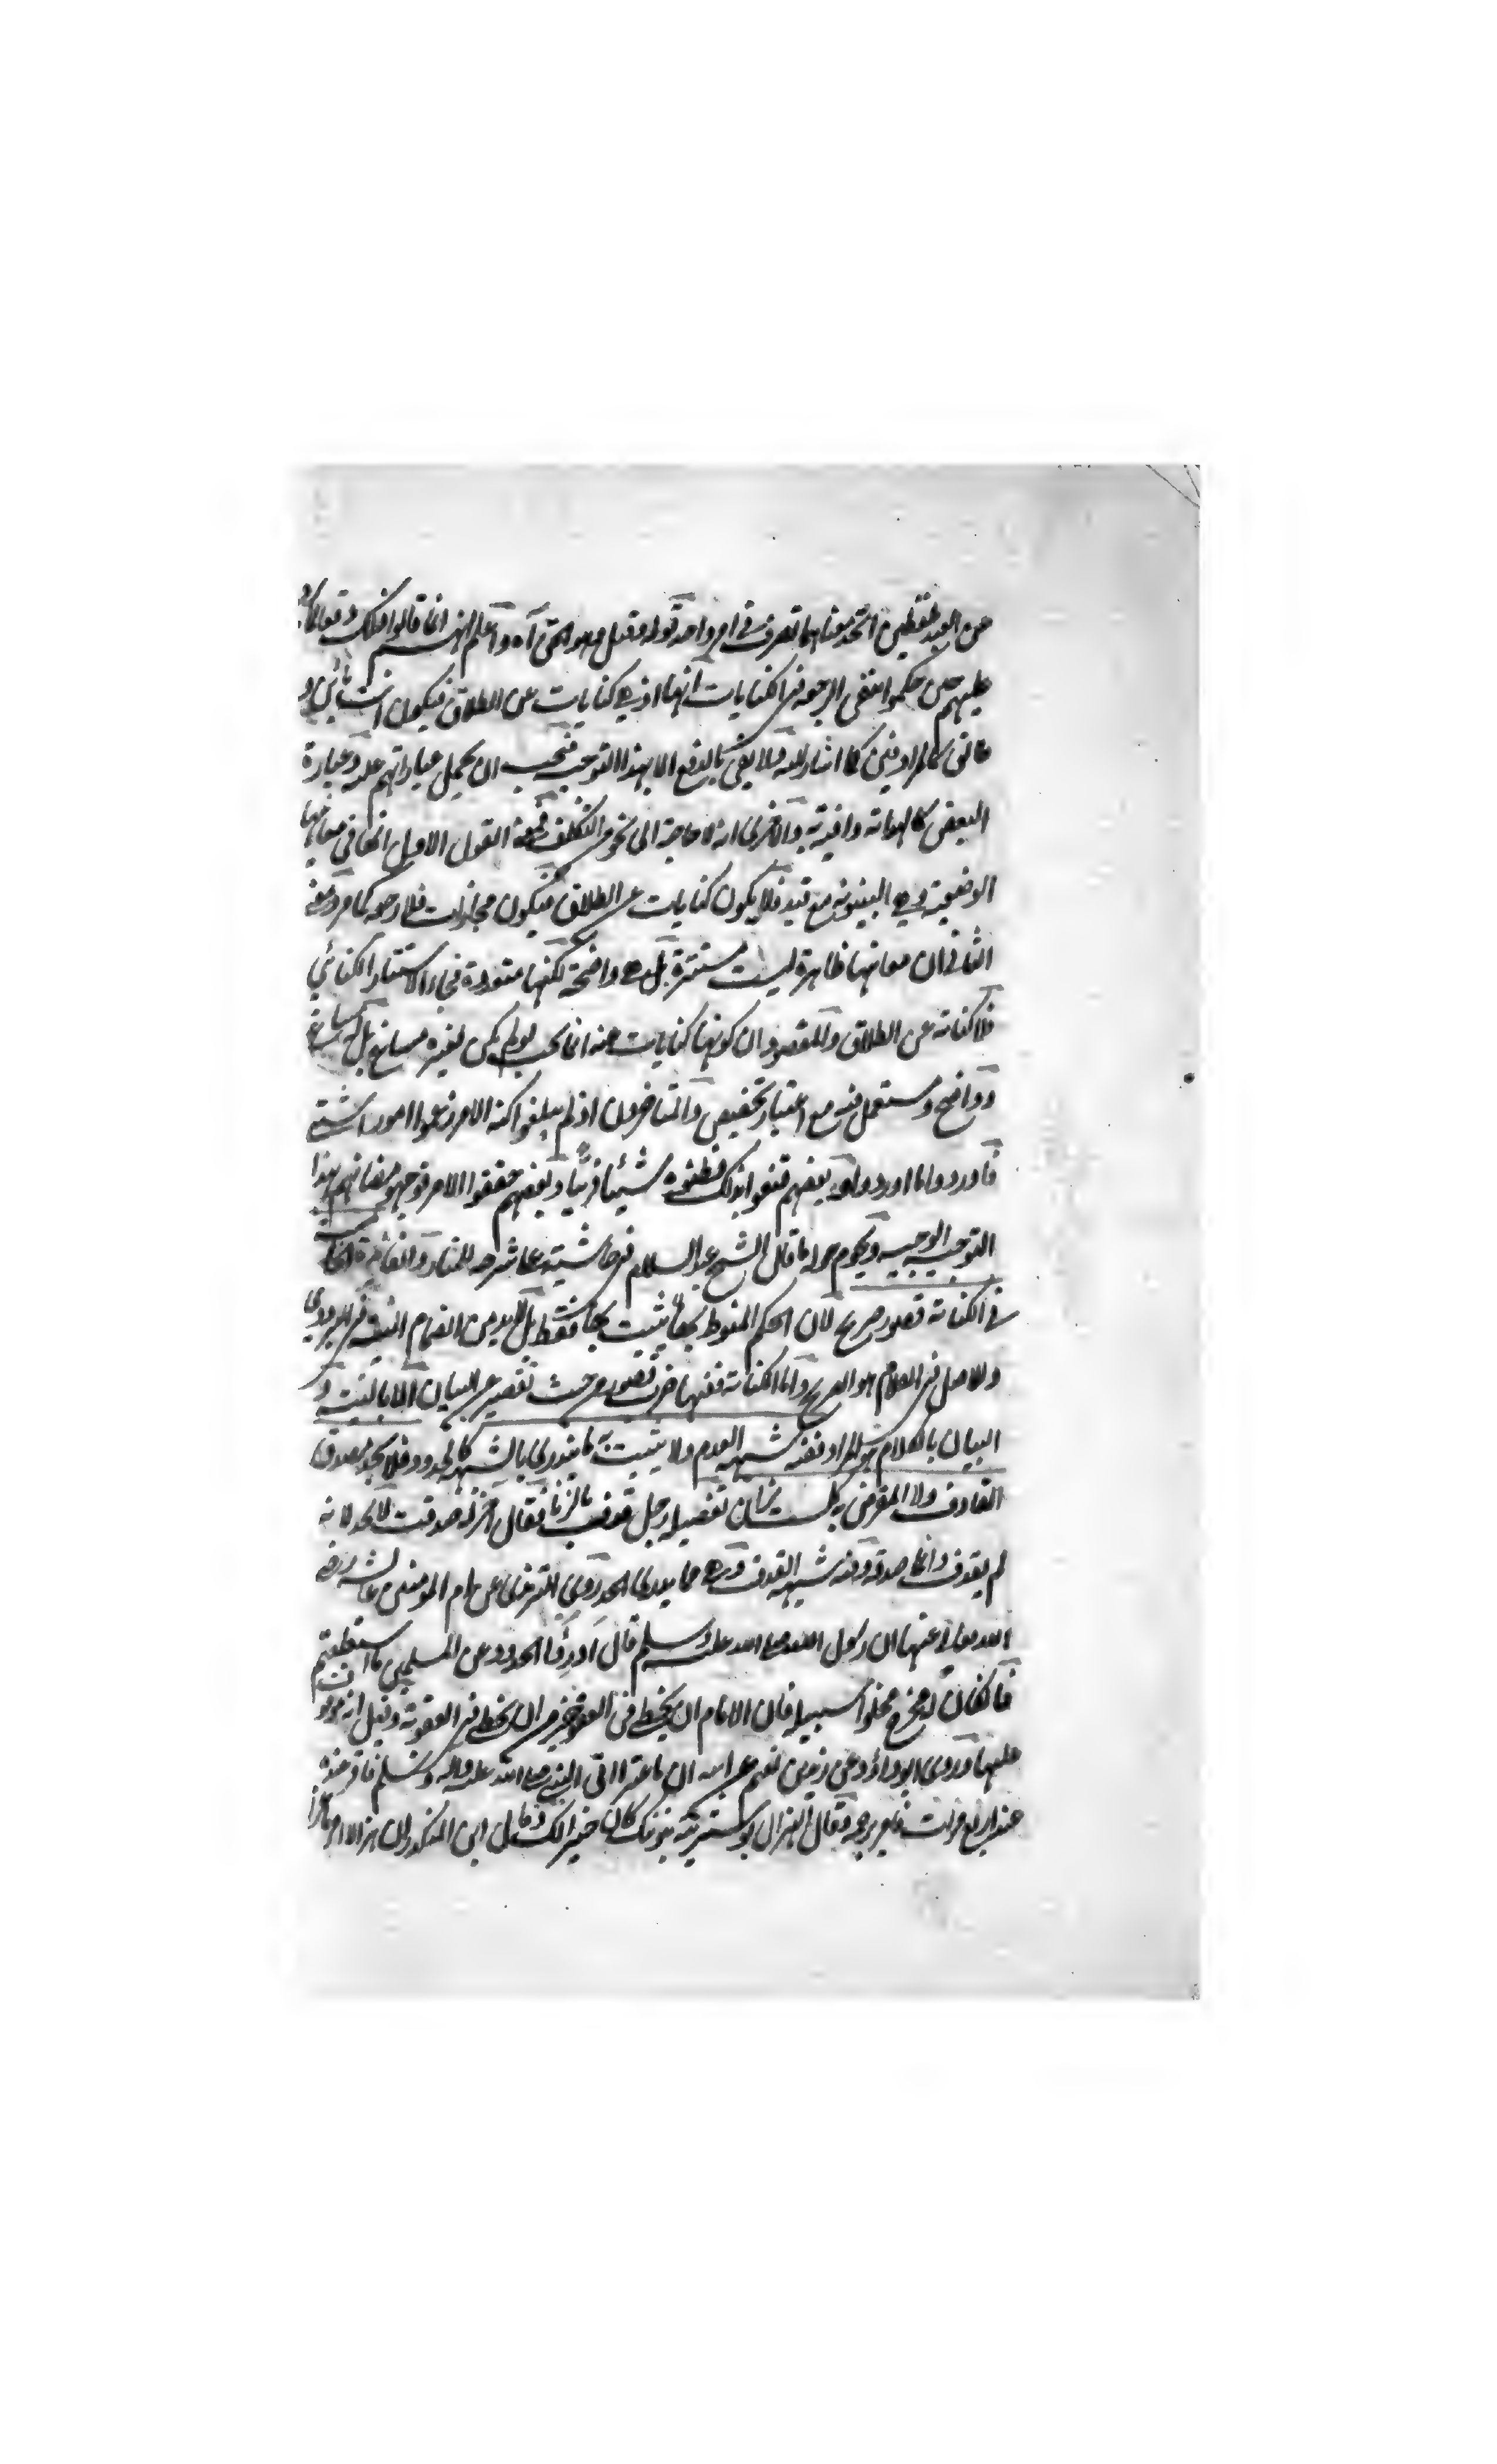 عن العبد لفظين اتحد معناهما تصرف في امر واحد قوله وقيل وهو الحق آه واعلم انهم انما قالوا ذلك
عليهم حين حكموا بنفي الرجعة في الكنايات انها اذ هي كنايات عن الطلاق فيكون انت بائن و
طالق كالمرادفين كما اشار اليه ولا يفي بالدفع الا بهذا التوجيه فيجب ان يحمل عباراتهم عليه وعبارة
البعض كالهداية وافية به والاخرى انه لا حاجة الى نحو من التكلف القول الاول انها في معانيها
الوضعية وهي البينونة مع قيد فلا يكون كنايات عن الطلاق فيكون مجازات فلا رجعة كما مر ومعنى
الثاني ان معانيها ظاهرة ليست مستترة بل هي واضحة لكنها متعددة فجاء الاستتار الكنائي
فلا كناية عن الطلاق والمقصود ان كونها كنايات عنه انما يجب لو لم يكن لغيره مساغ بل مساغ
وواضح ومستعمل فيه مع اعتبار تخصيص والمتاخرون اذ لم يبلغوا كنه الامر زعموا امورا شتى
فاوردوا ما اوردوا بعضهم قنعوا بذلك فظنوه شيئا فريا وبعضهم حققوا الامر فوجهوا بهذا
التوجيه الوجيه ويحوم حوله ما قال الشيخ عبد السلام في حاشيته على شرحه للمنار
في الكناية قصور صريح لان الحكم المنوط بها يثبت بها فقط بل لا بد من انضمام النية في البزدوي
والاصل في الكلام هو الصريح واما الكناية ففيها ضرب قصور من حيث تقصير عن البيان الا بالنية و
البيان بالكلام هو المراد ففيه شبهة العدم ولا يثبت به ما يندرئ بالشبهة كالحدود فلا يحد مصدق
القاذف ولا المعرض به كلست بزان تفصيله رجل قذف بالزنا فقال آخر له صدقت لا يحد لانه
لم يقذف وانما صدقه وفيه شبهة القذف وهي مما يدرئ الحد روى الترمذي عن ام المومنين عائشة رضي
الله تعالى عنها ان رسول الله صلى الله عليه وسلم قال ادرؤا الحدود عن المسلمين ما استطعتم
فان كان له مخرج فخلوا سبيله فان الامام ان يخطي في العفو خير من ان يخطي في العقوبة وقيل انه موقوف
عليها وروى ابو داؤد عن يزيد بن نعيم عن ابيه ان ماعزا اتى النبي صلى الله عليه واله وسلم فاقر عنده
عنده اربع مرات فامر برجمه وقال لهزال لو سترته بثوبك كان خيرا لك وقال ابن المنكدر ان هزالا امر ماعزا